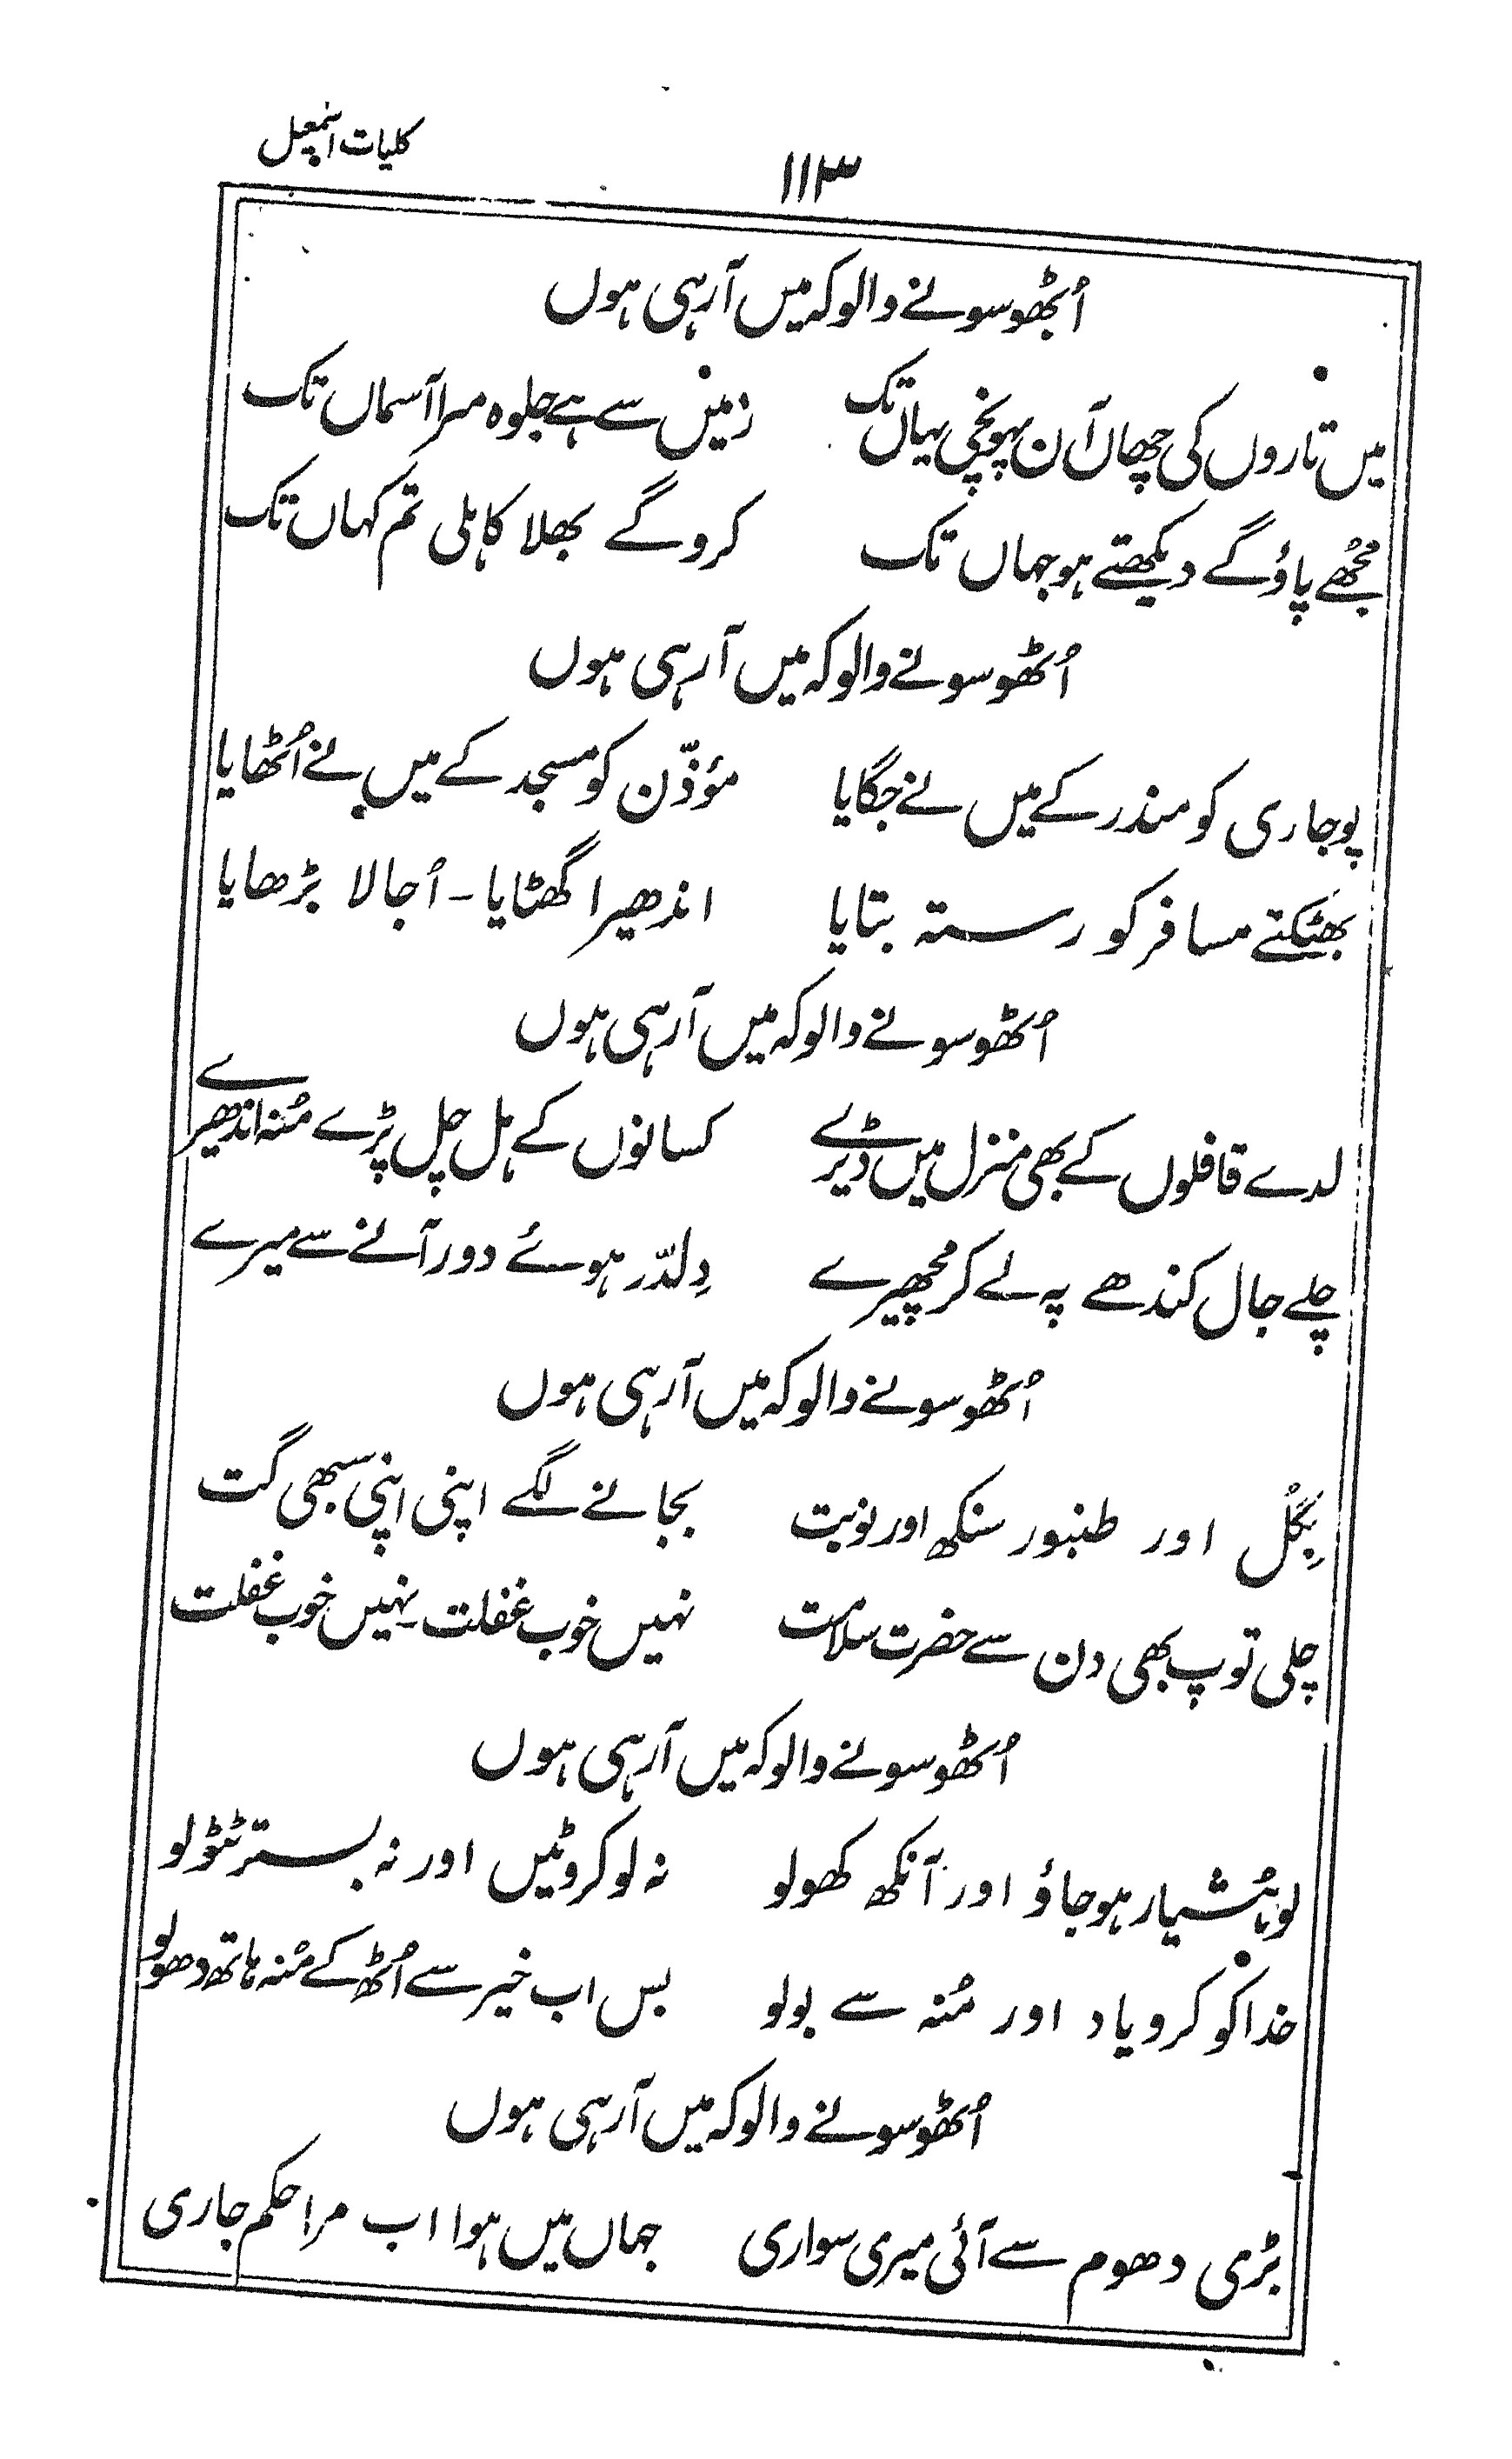 ۱۱۳
کلیات اسمٰعیل
اُٹھو سونے والو کہ میں آ رہی ہوں
میں تاروں کی چھاں آن پہونچی یہاں تک زمیں سے ہے جلوہ مرا آسماں تک
مُجھے پاؤ گے دیکھتے ہو جہاں تک کرو گے بھلا کاہلی تم کہاں تک
اُٹھو سونے والو کہ میں آ رہی ہوں
پوجاری کو مندر کے میں نے جگایا مؤذّن کو مسجد کے میں نے اُٹھایا
بھَٹکتے مسافر کو رستہ بتایا اندھیرا گھٹایا ۔ اُجالا بڑھایا
اُٹھو سونے والو کہ میں آ رہی ہوں
لدے قافلوں کے بھی منزل میں ڈیرے کسانوں کے ہل چل پڑے مُنہ اندھیرے
چلے جال کندھے پہ لے کر مچھیرے دِلدّر ہوئے دور آنے سے میرے
اُٹھو سونے والو کہ میں آ رہی ہوں
بِگُل اور طنبور سنکھ اور نوبت بجانے لگے اپنی اپنی سبھی گت
چلی توپ بھی دن سے حضرت سلامت نہیں خوب غفلت ۔ نہیں خوب غفلت
اُٹھو سونے والو کہ میں آ رہی ہوں
لو ہُشیار ہو جاؤ اور آنکھ کھولو نہ لو کروٹیں اور نہ بستر ٹٹولو
خدا کو کرو یاد اور مُنہ سے بولو بس اب خیر سے اُٹھ کے مُنہ ہاتھ دھولو
اُٹھو سونے والو کہ میں آ رہی ہوں
بڑی دھوم سے آئی میری سواری جہاں میں ہوا اب مرا حکم جاری